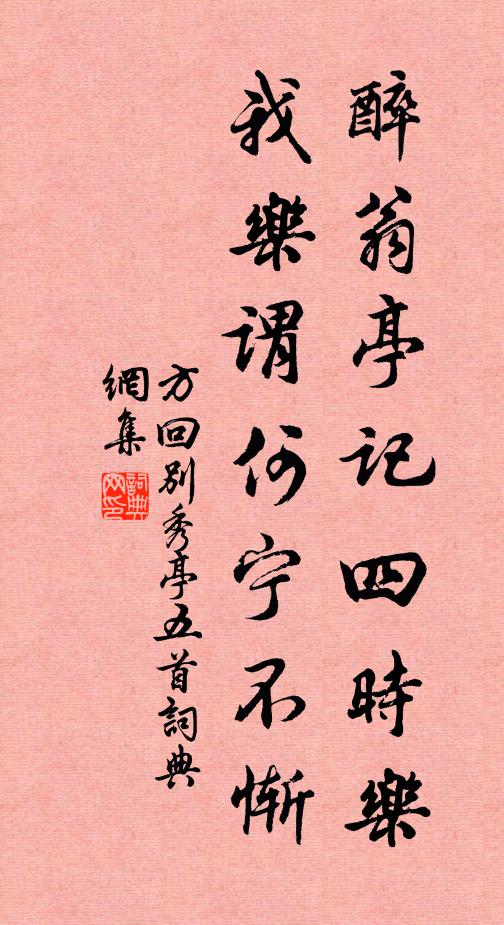 醉翁亭記四時樂
我樂謂何宁不慚
方回别秀亭五首詞典
網集
詞典
网印